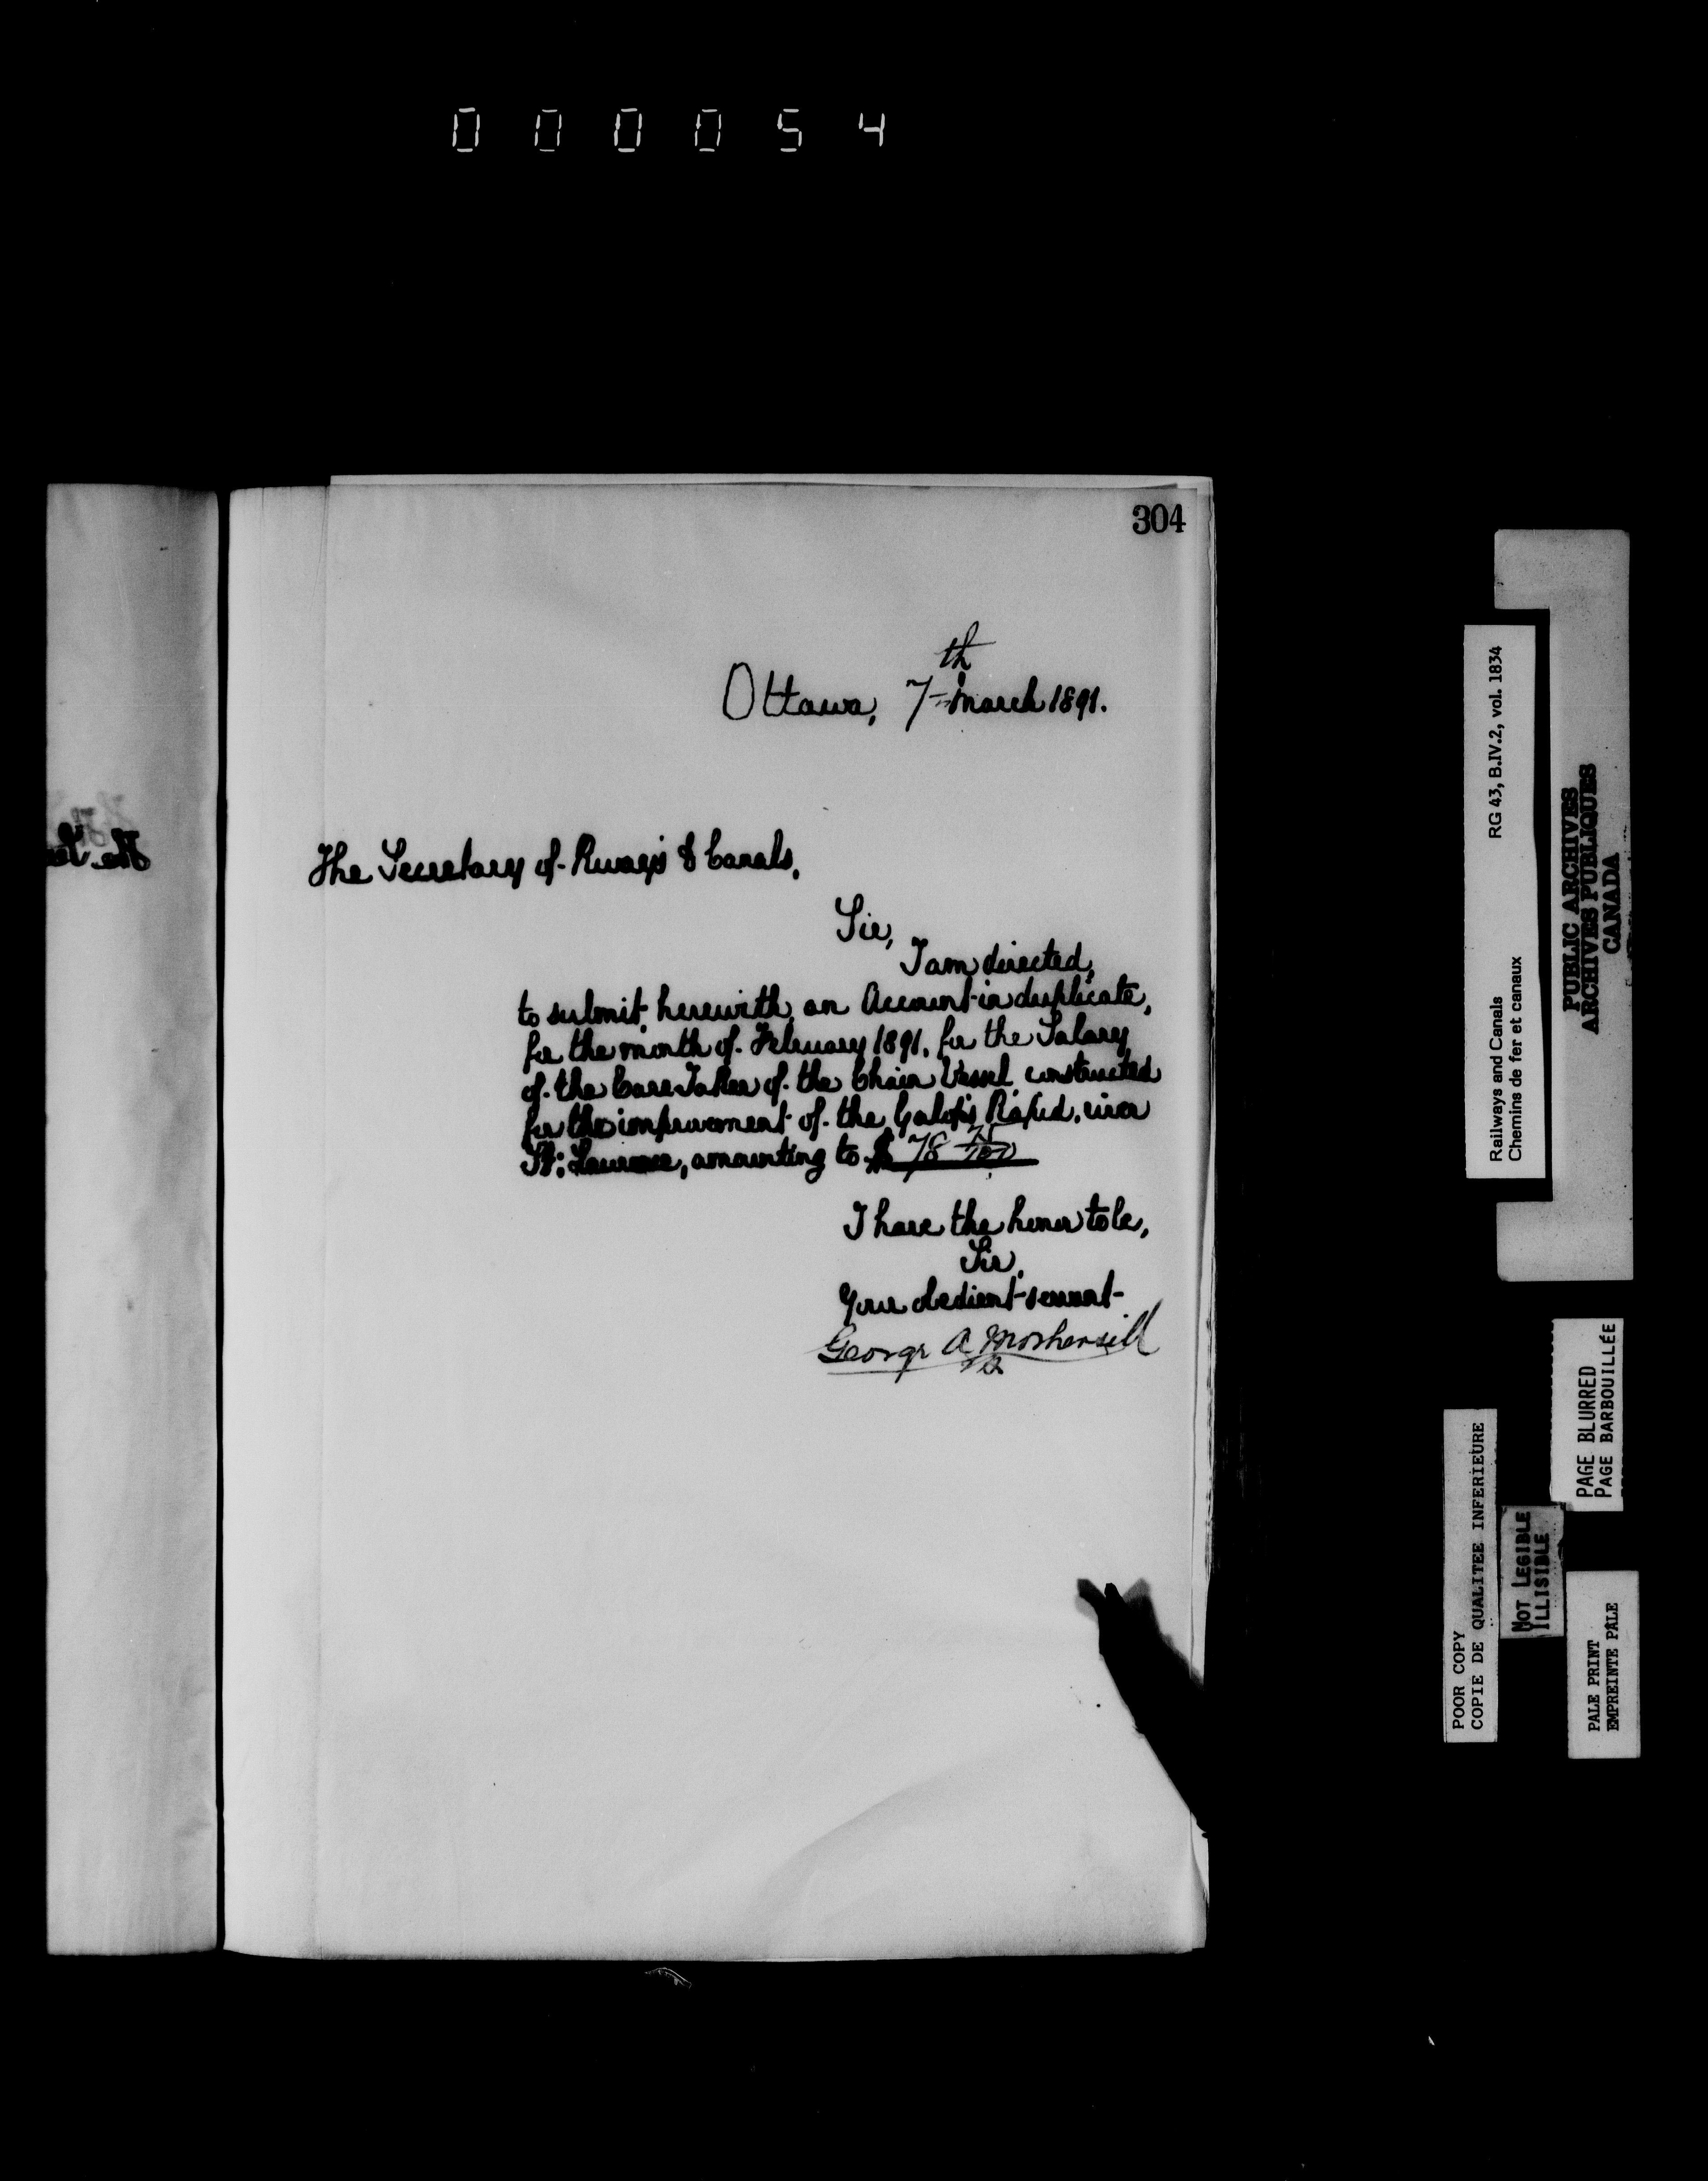 000054
304
Ottawa, 7th March 1891.
The Secretary of Rways & Canals,
Sir,
I am directed,
to submit, herewith, an Account in duplicate,
for the month of February 1891, for the Salary
of the Care Taker of the Chain Vessel constructed
for the improvement of the Galops Rapid, river
St: Lawrence, amounting to $ 78 75/100
I have the honor to be,
Sir,
Your obedient servant
George A Mothersill
RG 43, B.IV.2, vol. 1834
Railways and Canals
Chemins de fer et canaux
PUBLIC ARCHIVES
ARCHIVES PUBLIQUES
CANADA
PAGE BLURRED
PAGE BARBOUILLÉE
POOR COPY
COPIE DE QUALITEE INFERIEURE
NOT LEGIBLE
ILLISIBLE
PALE PRINT
EMPREINTE PÂLE